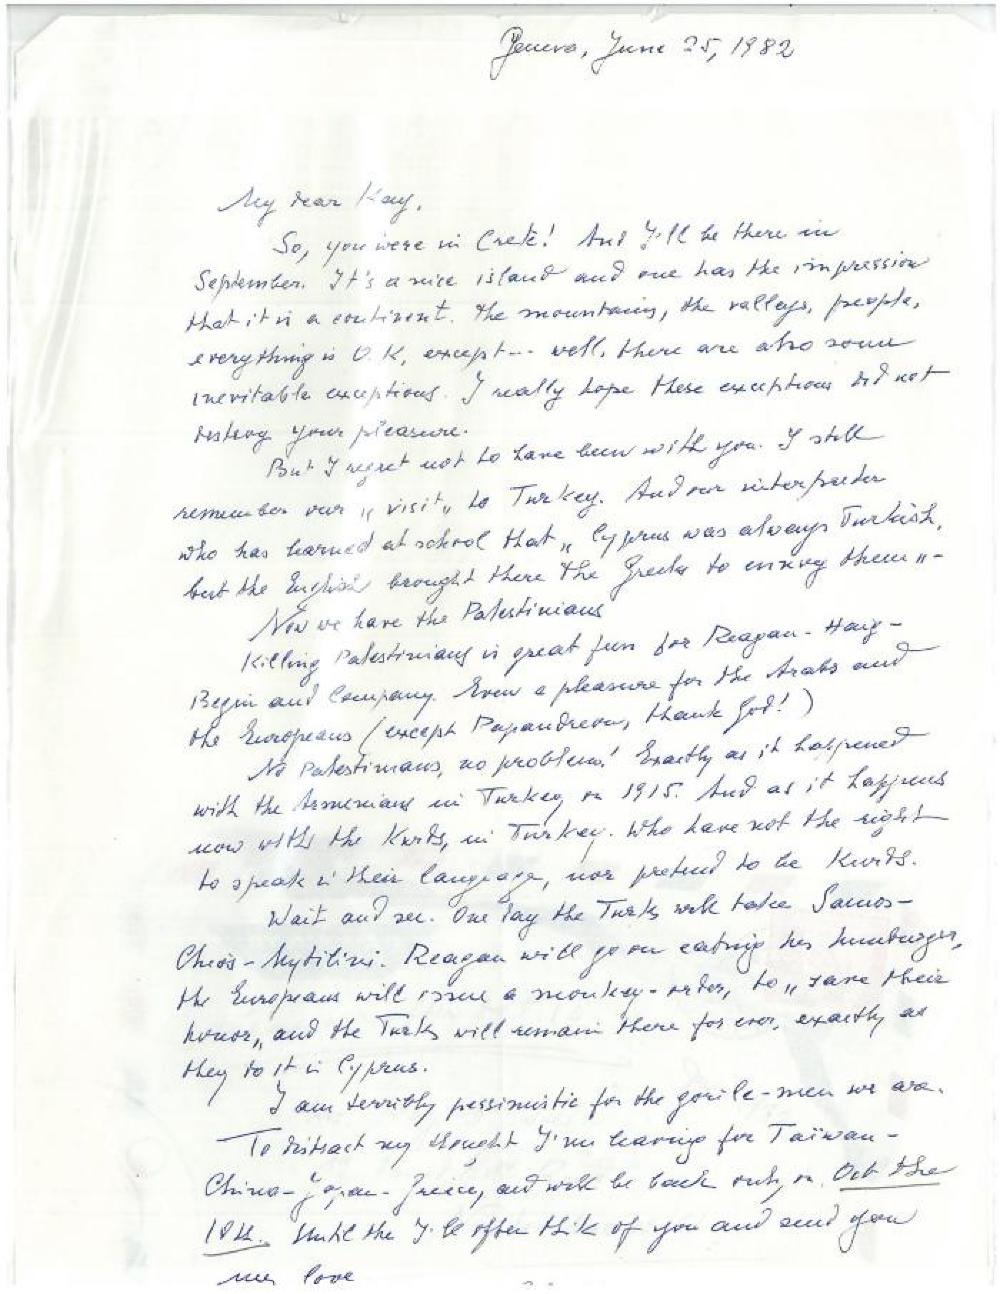 Geneva, June 25, 1982
My dear Kay.
So, you were in Crete! And I'll be there in
September. It's a nice island and one has the impression
that it is a continent. The mountains, the valleys, people,
everything is O.K, except--- well, there are also some
inevitable exceptions. I really hope these exceptions did not
destroy your pleasure.
But I regret not to have been with you. I still
remember our „visit„ to Turkey. And our interpreter
who has learned at school that „Cyprus was always Turkish,
but the English brought there the Greeks to annoy them„-
Now we have the Palestinians
Killing Palestinians is great fun for Reagan - Haig -
Begin and Company. Even a pleasure for the Arabs and
the Europeans (except Papandreou, thank God!)
No Palestinians, no problem! Exactly as it happened
with the Armenians in Turkey on 1915. And as it happens
now with the Kurds, in Turkey. Who have not the right
to speak in their language, nor pretend to be Kurds.
Wait and see. One day the Turks will take Samos-
Chios - Mytilini. Reagan will go on eating his humburger,
the Europeans will issue a monkey-order, to „save their
honor„, and the Turks will remain there for ever, exactly as
they do it in Cyprus.
I am terribly pessimistic for the gorile-men we are.
To distract my thought I'm leaving for Taïwan -
China - Japan - Greece, and will be back only on Oct the
18th. Until the I'll often thik of you and send you
my love